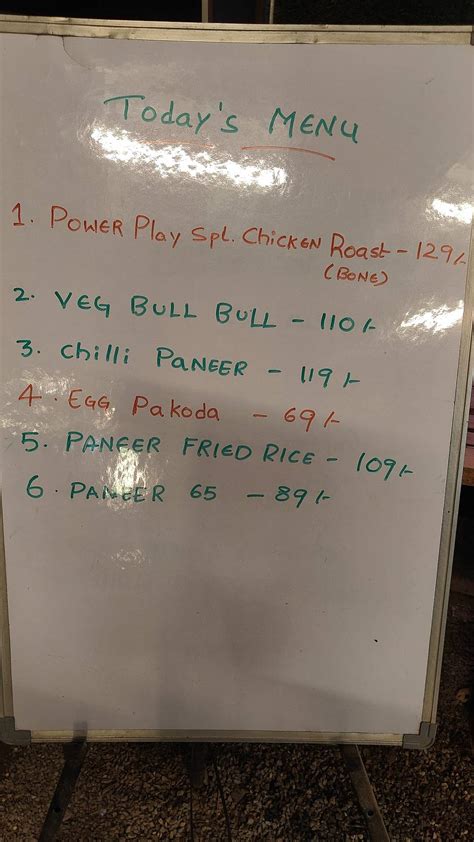 Today's MENU
1. POWER Play Spl. CHICKEN Roast - 129/-
(BONE)
2. VEG BULL BULL - 110/-
3. Chilli PANEER - 119/-
4. EGG Pakoda - 69/-
5. PANEER FRIED RICE - 109/-
6. PANEER 65 - 89/-